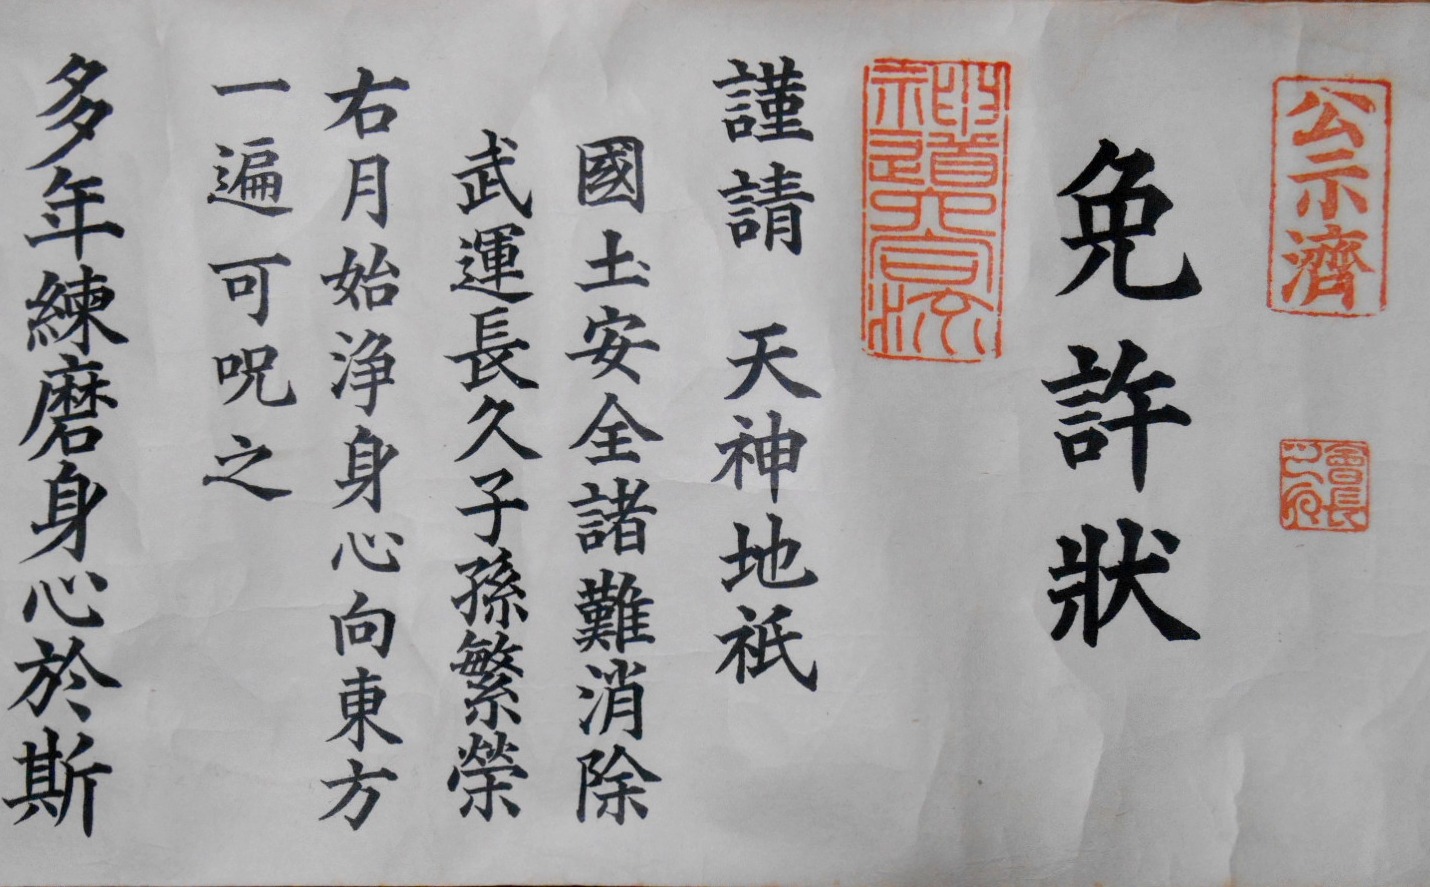 公示濟
免許狀
謹請　天神地祇
國土安全諸難消除
武運長久子孫繁榮
右月始浄身心向東方
一遍可呪之
多年練磨身心於斯